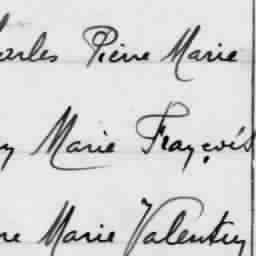 arles Pierre Marie
y Marie François
re Marie Valentin